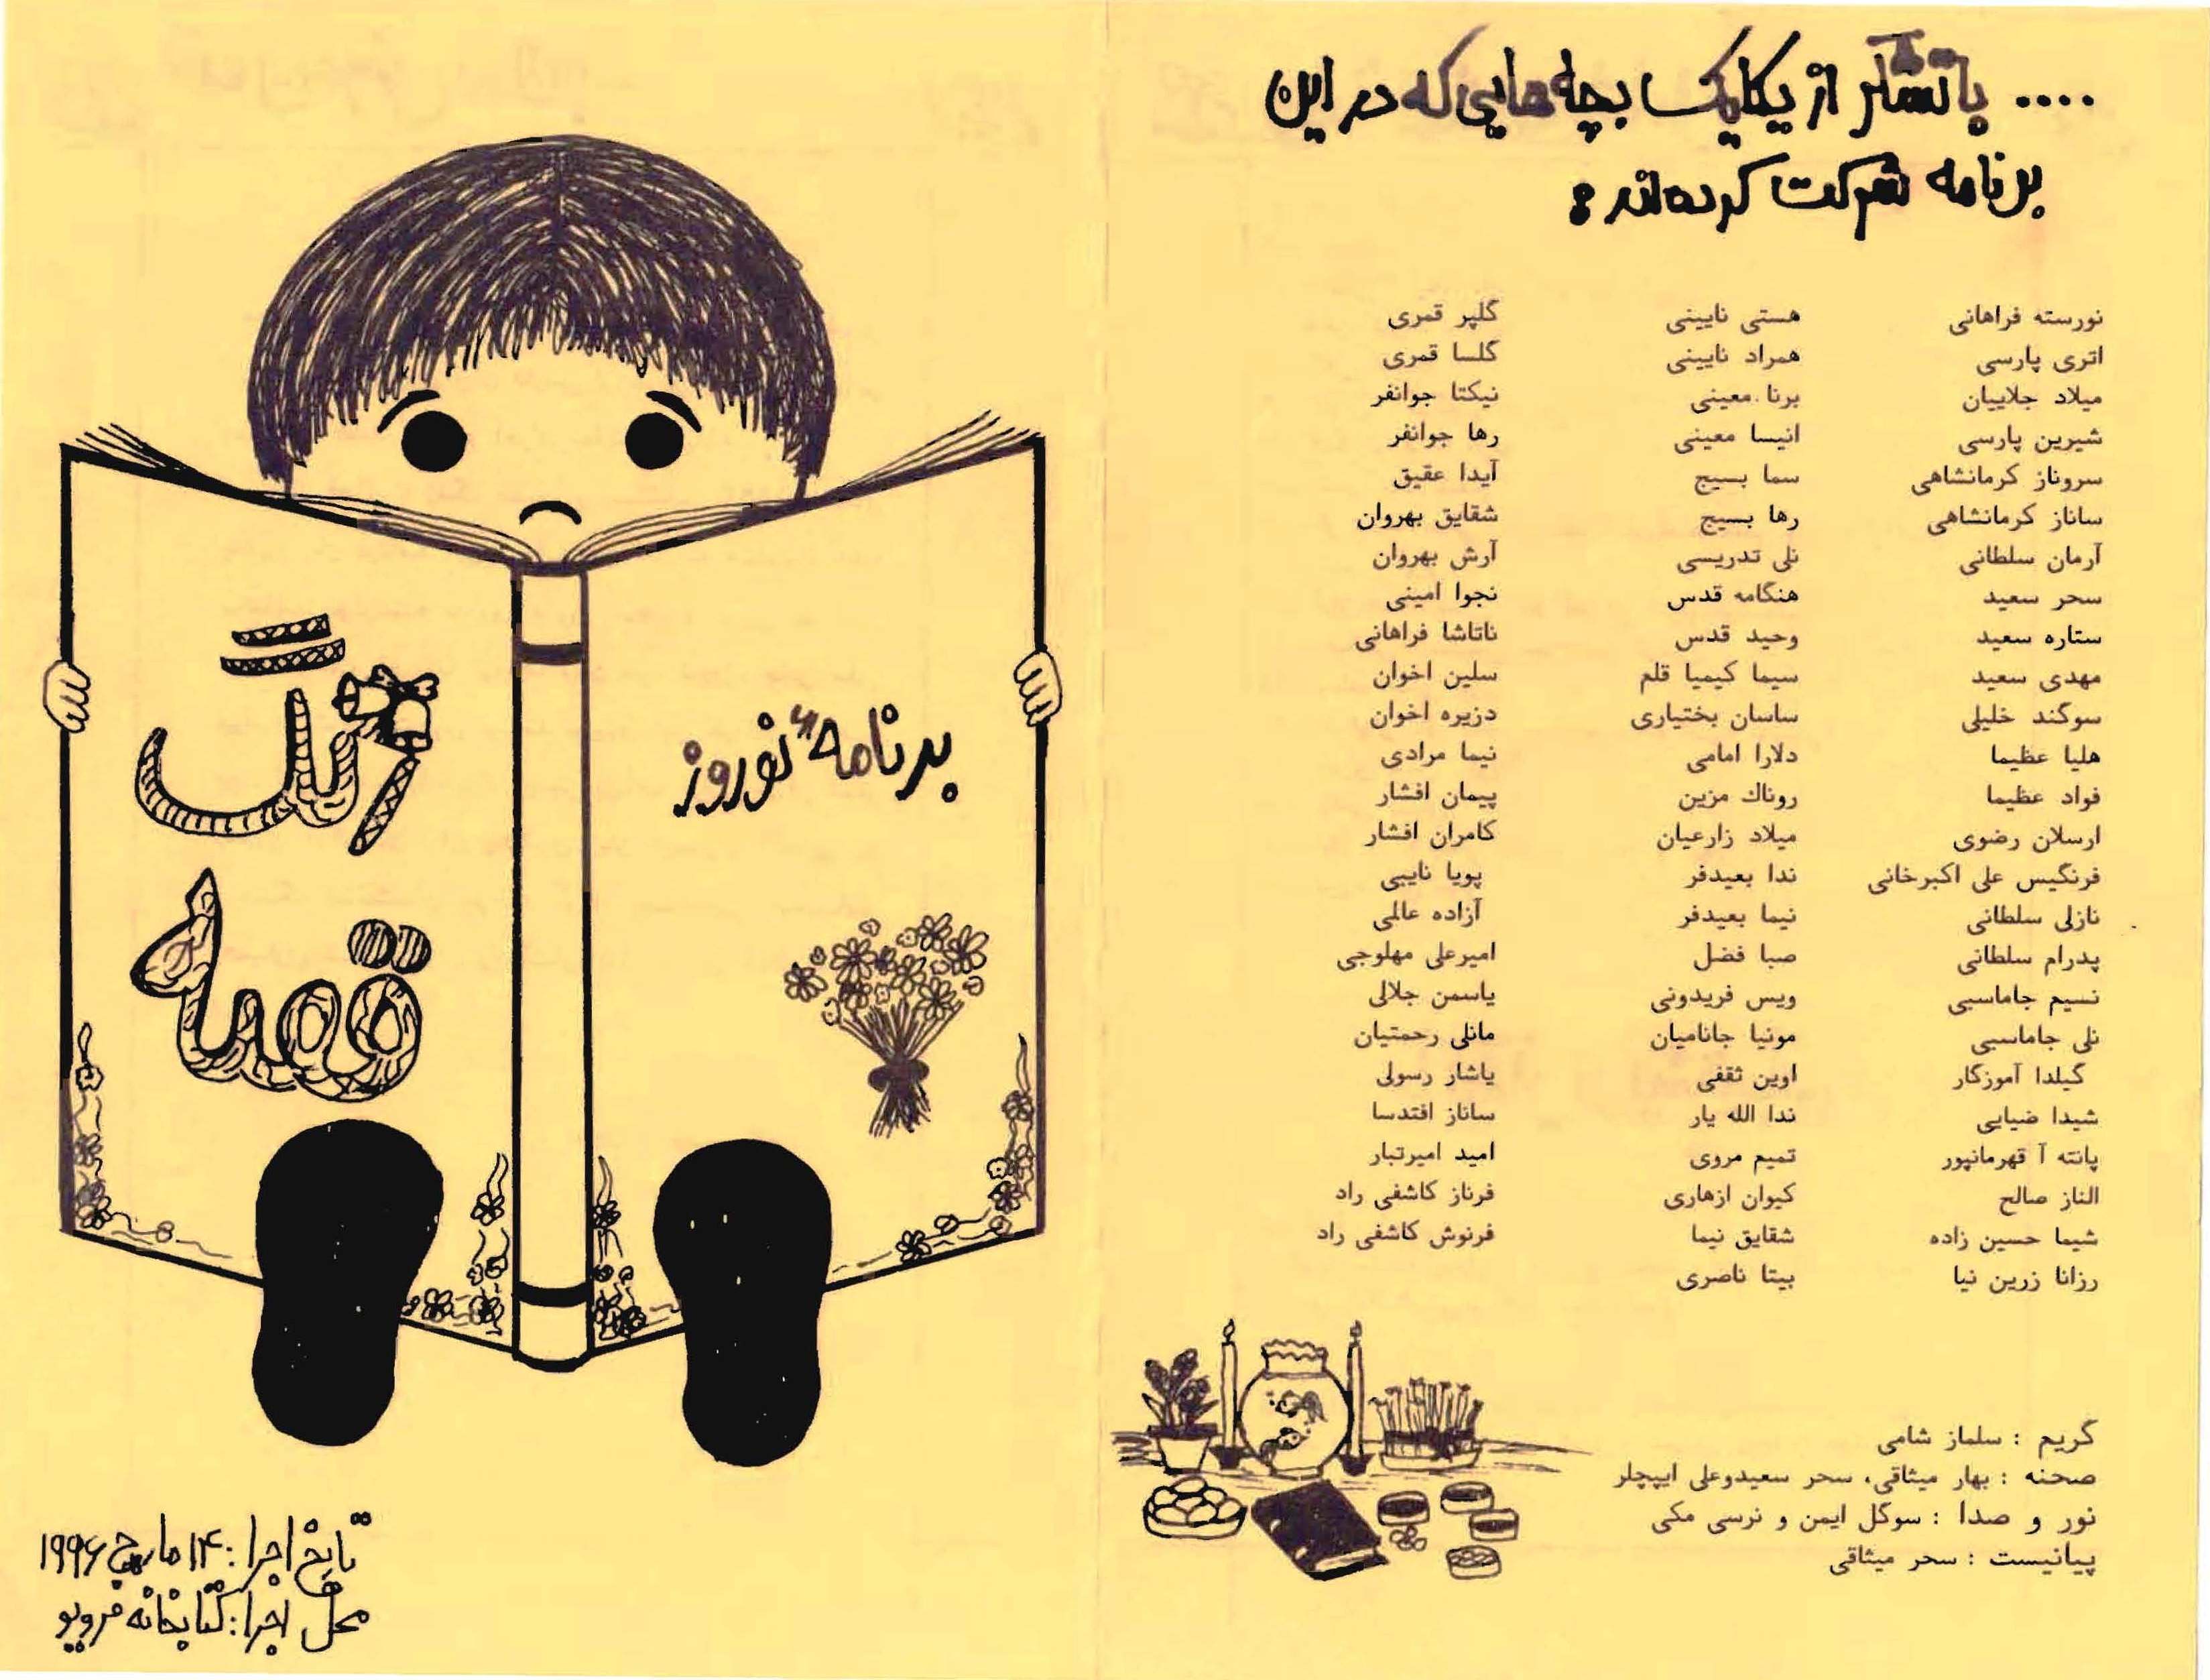 .... با تشکر از یکایک بچه‌هایی که در این
برنامه شرکت کرده‌اند :
نورسته فراهانی
اتری پارسی
میلاد جلاییان
شیرین پارسی
سروناز کرمانشاهی
ساناز کرمانشاهی
آرمان سلطانی
سحر سعید
ستاره سعید
مهدی سعید
سوگند خلیلی
هلیا عظیما
فواد عظیما
ارسلان رضوی
فرنگیس علی اکبرخانی
نازلی سلطانی
پدرام سلطانی
نسیم جاماسبی
نلی جاماسبی
گیلدا آموزگار
شیدا ضیایی
پانته آ قهرمانپور
الناز صالح
شیما حسین زاده
رزانا زرین نیا
هستی نایینی
همراد نایینی
برنا معینی
انیسا معینی
سما بسیج
رها بسیج
نلی تدریسی
هنگامه قدس
وحید قدس
سیما کیمیا قلم
ساسان بختیاری
دلارا امامی
روناك مزین
میلاد زارعیان
ندا بعیدفر
نیما بعیدفر
صبا فضل
ویس فریدونی
مونیا جانامیان
اوین ثقفی
ندا الله یار
تمیم مروی
کیوان ازهاری
شقایق نیما
بیتا ناصری
گلپر قمری
گلسا قمری
نیکتا جوانفر
رها جوانفر
آیدا عقیق
شقایق بهروان
آرش بهروان
نجوا امینی
ناتاشا فراهانی
سلین اخوان
دزیره اخوان
نیما مرادی
پیمان افشار
کامران افشار
پویا نایبی
آزاده عالمی
امیرعلی مهلوجی
یاسمن جلالی
مانلی رحمتیان
یاشار رسولی
ساناز افتدسا
امید امیرتبار
فرناز کاشفی راد
فرنوش کاشفی راد
گریم : سلماز شامی
صحنه : بهار میثاقی، سحر سعیدوعلی ایپچلر
نور و صدا : سوگل ایمن و نرسی مکی
پیانیست : سحر میثاقی
برنامهٔ نوروز
زنگ
قصه
تاریخ اجرا : ۱۴ مارچ ۱۹۹۶
محل اجرا : کتابخانه فرویو